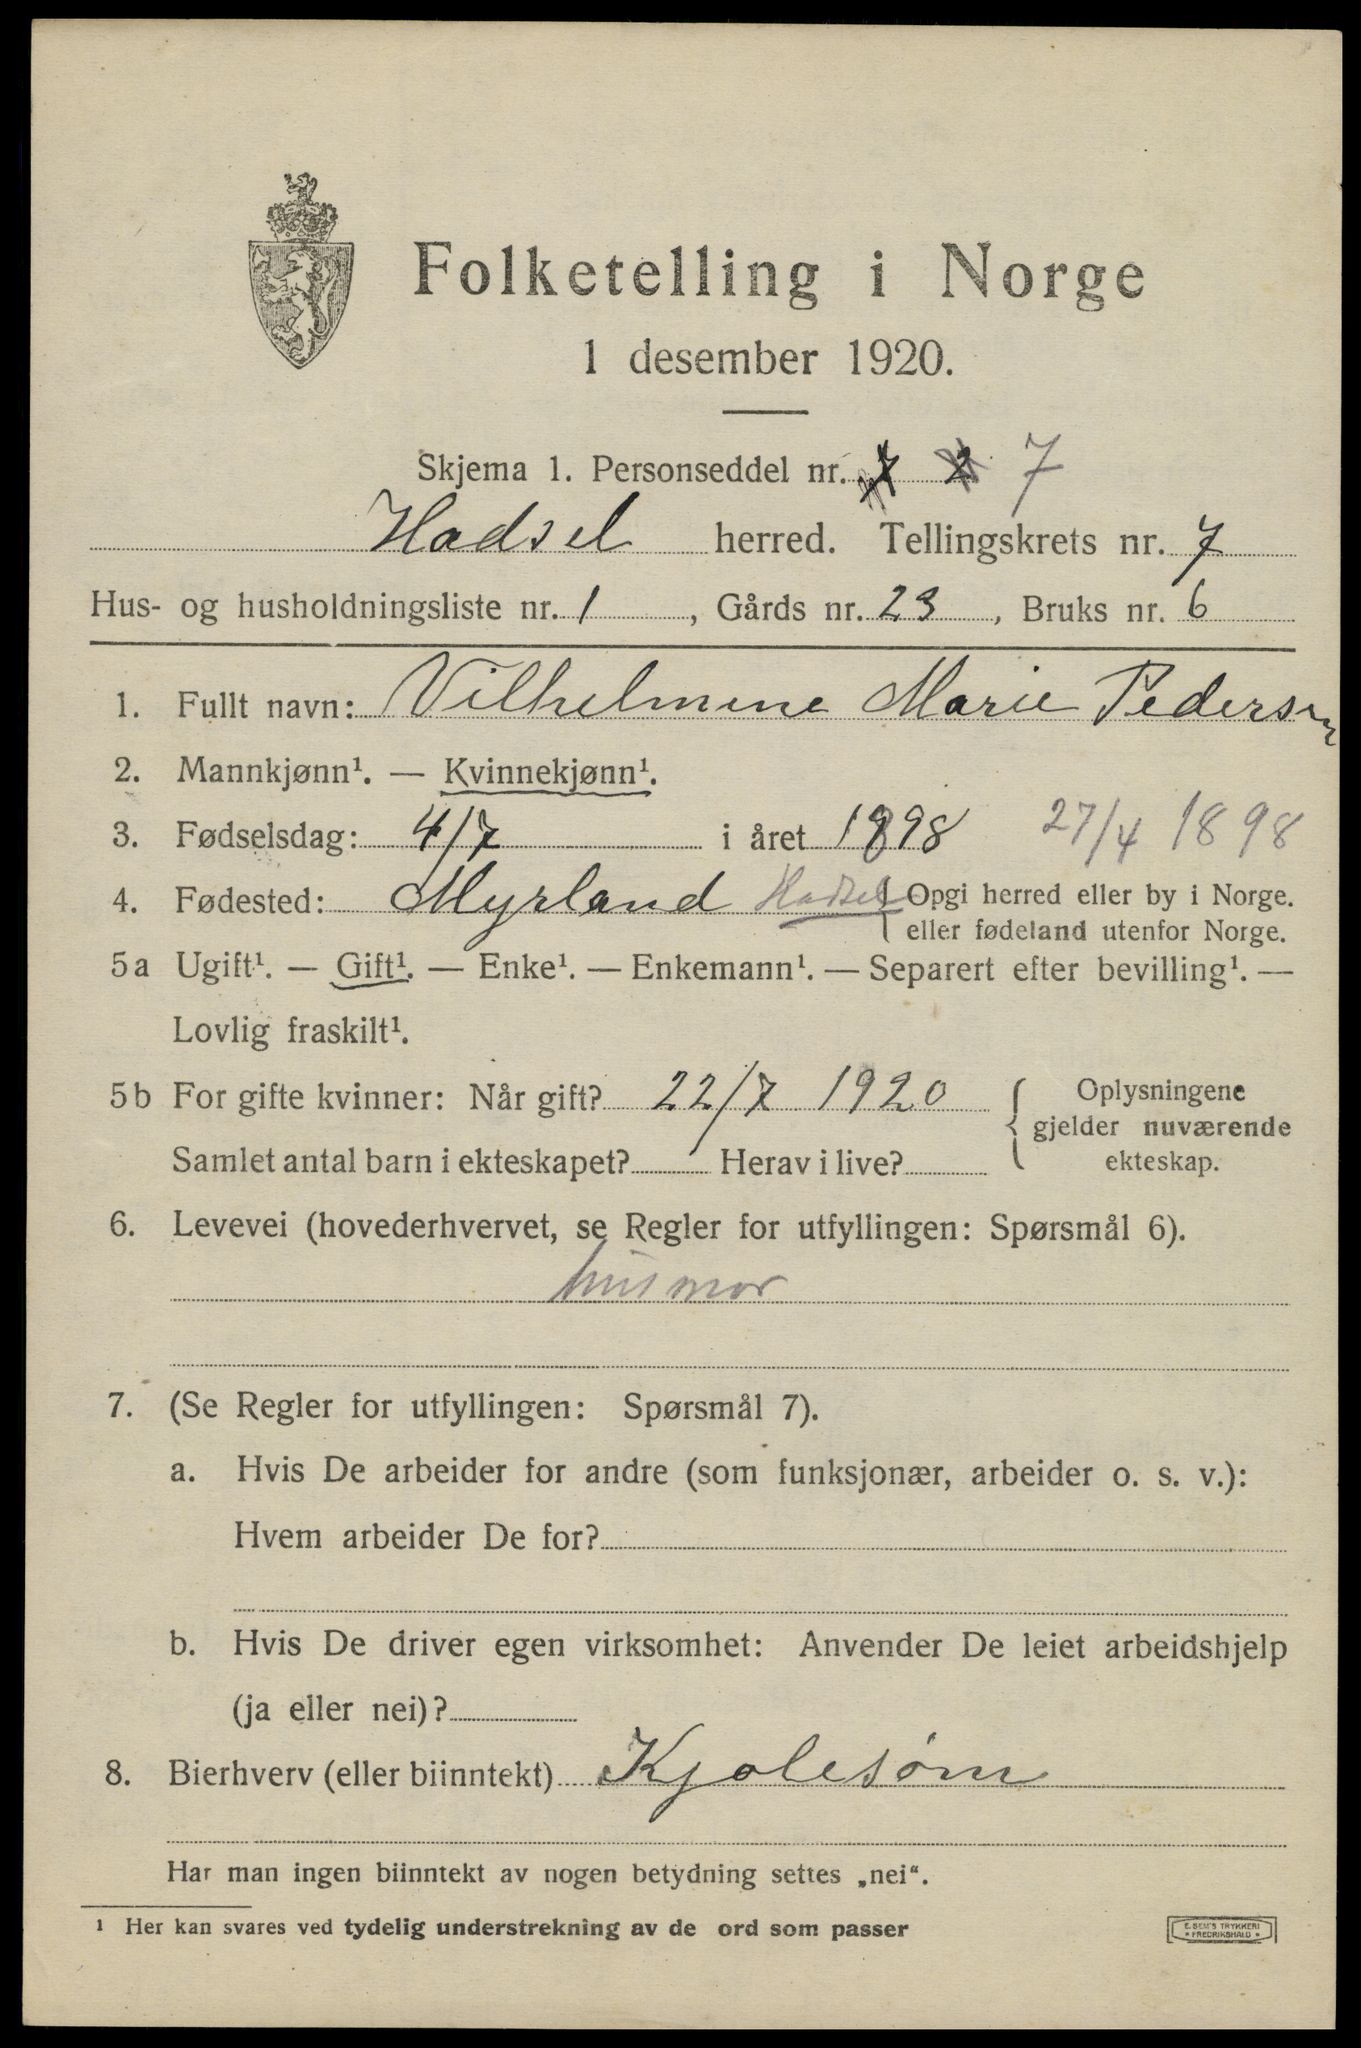 Folketelling i Norge
1 desember 1920.
Skjema 1. Personseddel nr. 7
Hadsel herred. Tellingskrets nr. 7
Hus- og husholdningsliste nr. 1, Gårds nr. 23, Bruks nr. 6
1. Fullt navn: Vilhelmine Marie Pedersen
2. Mannkjønn¹. — Kvinnekjønn¹.
3. Fødselsdag: 4/7 i året 1898 27/4 1898
4. Fødested: Myrland Hadsel Opgi herred eller by i Norge.
eller fødeland utenfor Norge.
5a Ugift¹. — Gift¹. — Enke¹. — Enkemann¹. — Separert efter bevilling¹. —
Lovlig fraskilt¹.
5b For gifte kvinner: Når gift? 22/7 1920 Oplysningene
gjelder nuværende
Samlet antal barn i ekteskapet? Herav i live? ekteskap.
6. Levevei (hovederhvervet, se Regler for utfyllingen: Spørsmål 6).
husmor
7. (Se Regler for utfyllingen: Spørsmål 7).
a. Hvis De arbeider for andre (som funksjonær, arbeider o. s. v.):
Hvem arbeider De for?
b. Hvis De driver egen virksomhet: Anvender De leiet arbeidshjelp
(ja eller nei)?
8. Bierhverv (eller biinntekt) Kjolesøm
Har man ingen biinntekt av nogen betydning settes „nei“.
¹ Her kan svares ved tydelig understrekning av de ord som passer
E. SEM'S TRYKKERI
FREDRIKSHALD